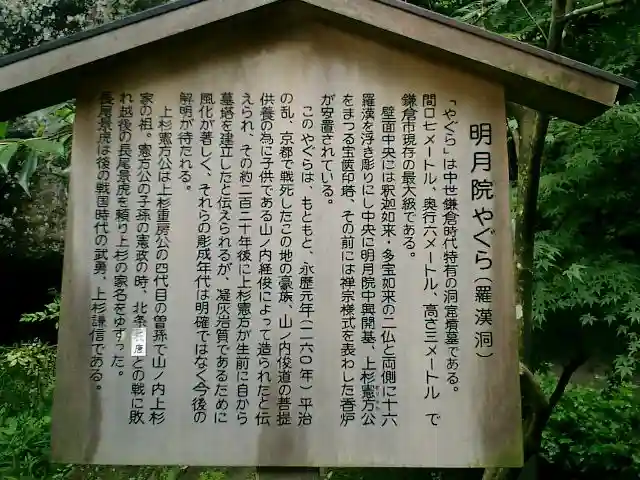 明月院やぐら（羅漢洞）
「やぐら」は中世鎌倉時代特有の洞窟墳墓である。
間口七メートル、奥行六メートル、高さ三メートル で
鎌倉市現存の最大級である。
壁面中央には釈迦如来・多宝如来の二仏と両側に十六
羅漢を浮き彫りにし中央に明月院中興開基、上杉憲方公
をまつる宝篋印塔、その前には禅宗様式を表わした香炉
が安置されている。
このやぐらは、もともと、永暦元年（一一六〇年）平治
の乱、京都で戦死したこの地の豪族、山ノ内俊道の菩提
供養の為に子供である山ノ内経俊によって造られたと伝
えられ、その約二百二十年後に上杉憲方が生前に自から
墓塔を建立したと伝えられるが、凝灰岩質であるために
風化が著しく、それらの彫成年代は明確ではなく今後の
解明が待たれる。
上杉憲方公は上杉重房公の四代目の曽孫で山ノ内上杉
家の祖、憲方公の子孫の憲政の時、北条氏康との戦に敗
れ越後の長尾景虎を頼り上杉の家名をゆずった。
長尾景虎は後の戦国時代の武勇、上杉謙信である。